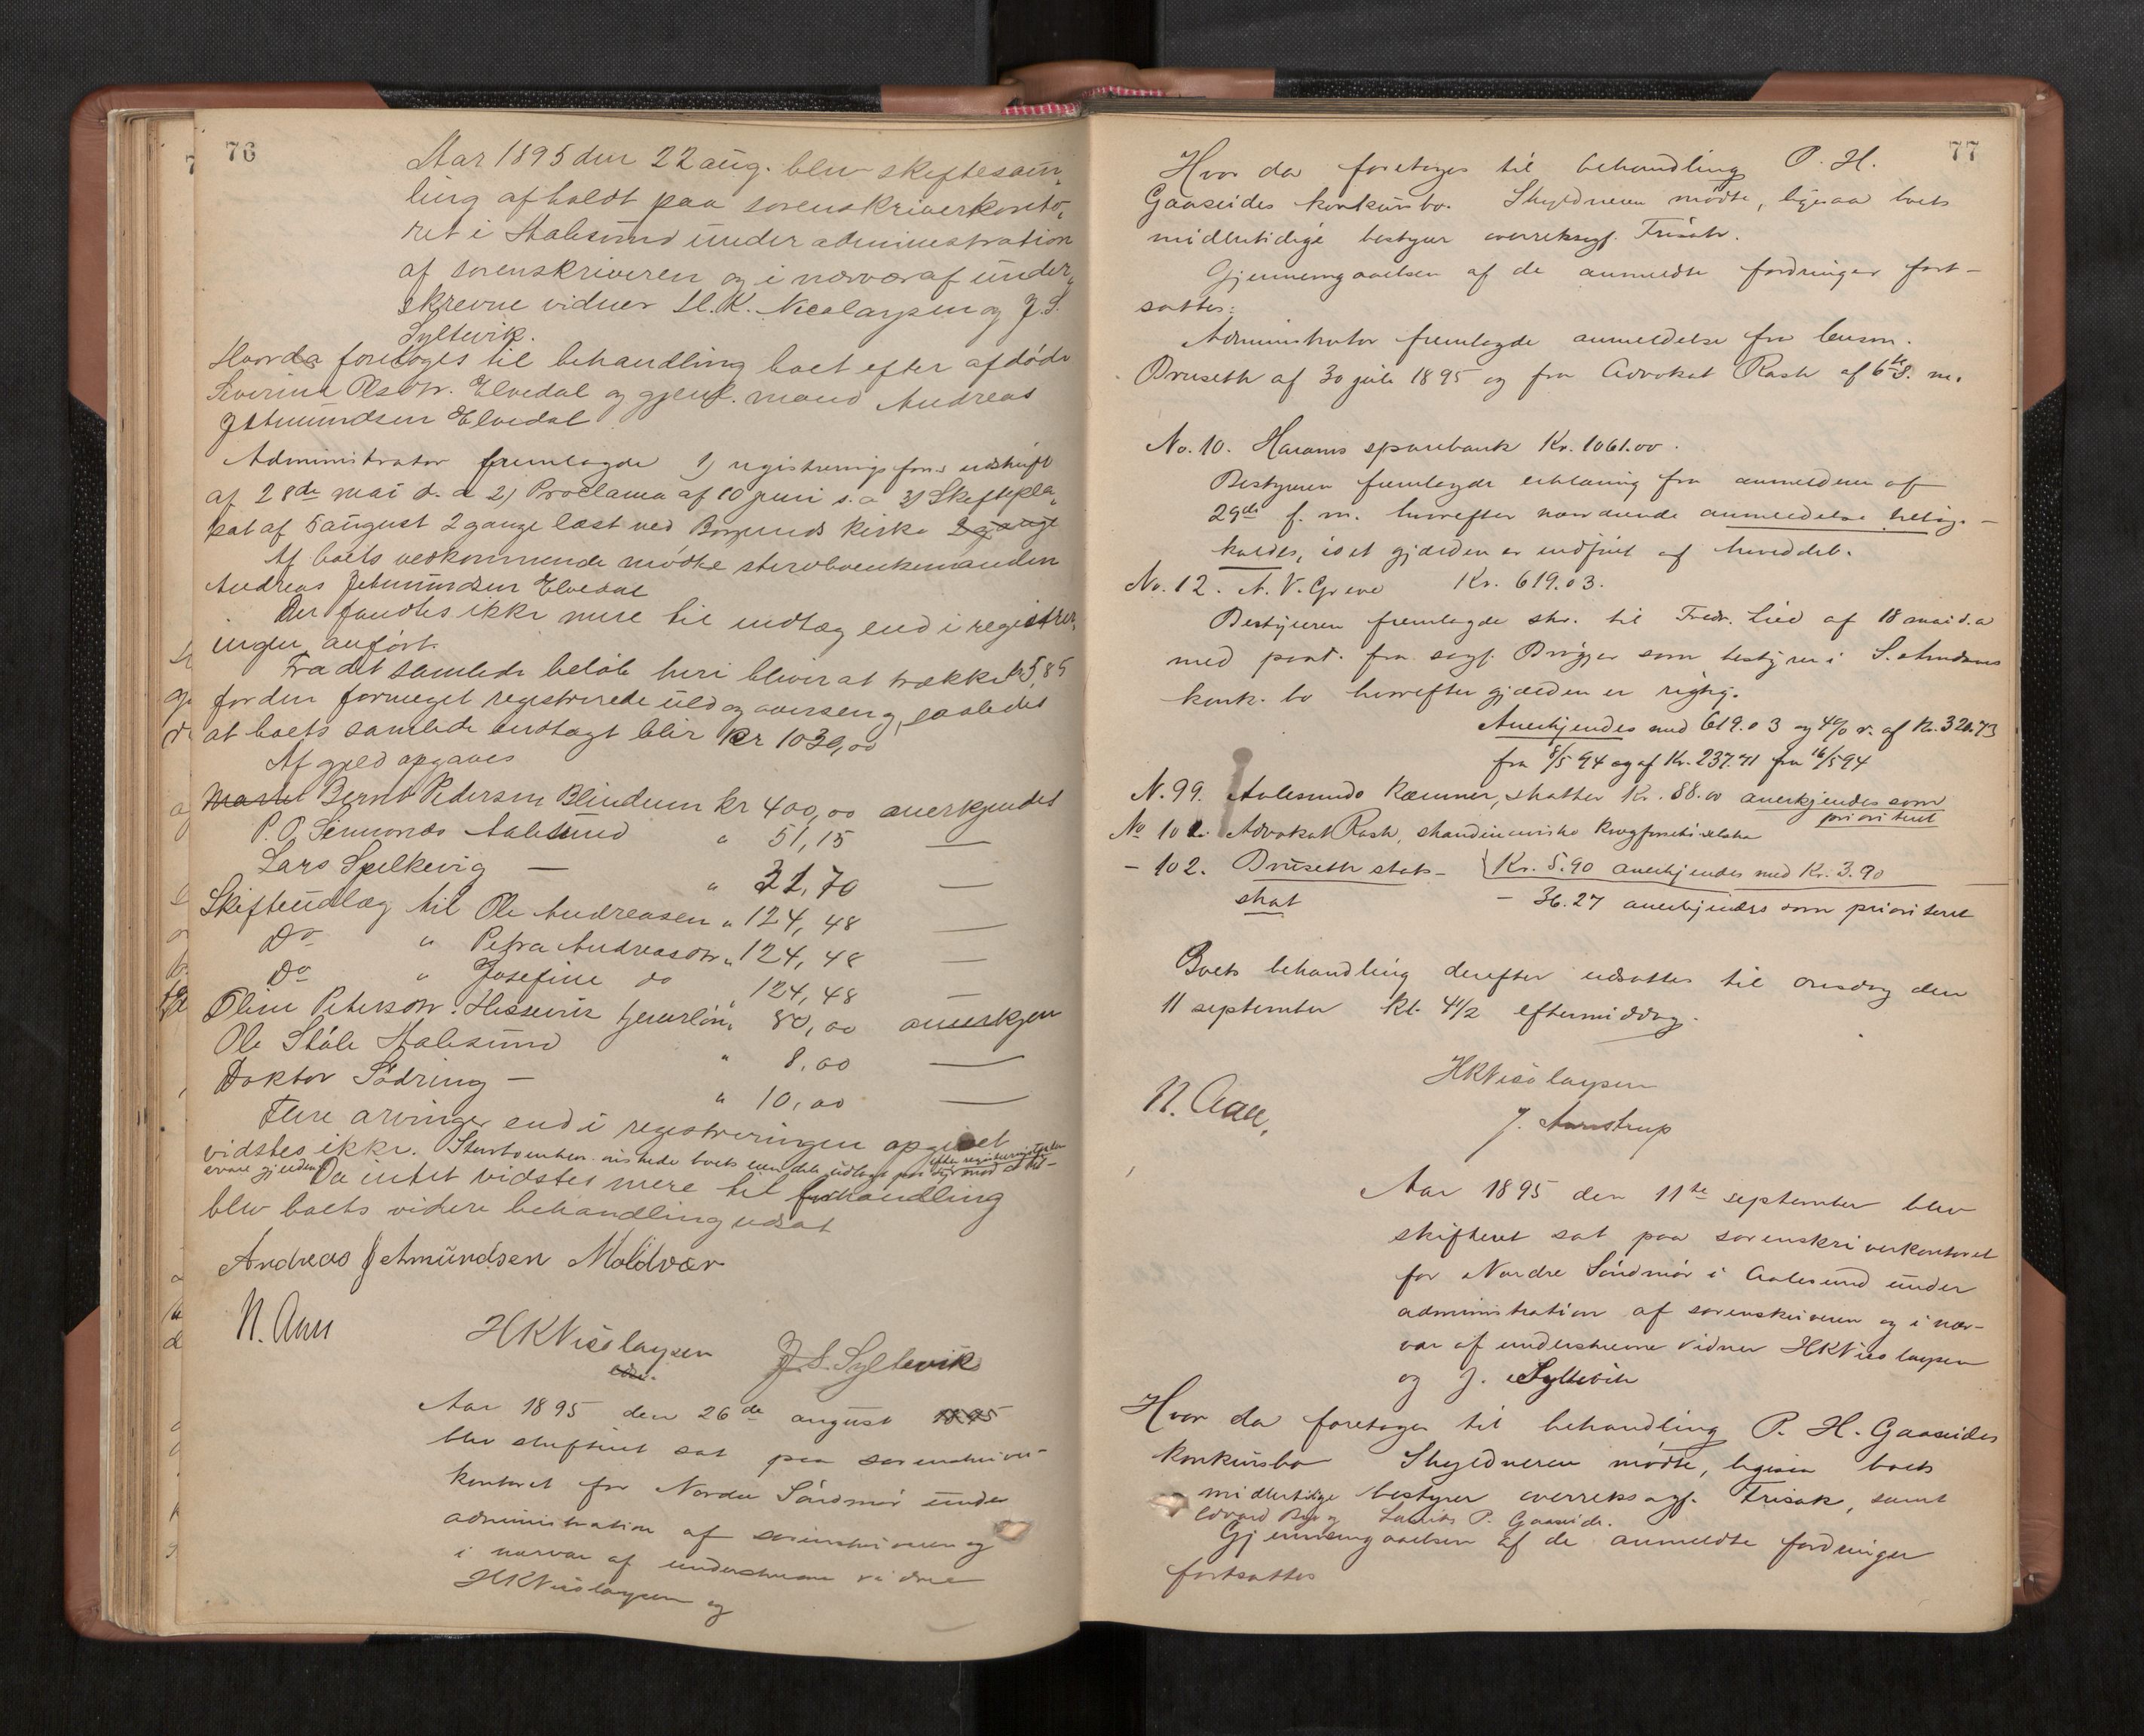 76
Aar 1895 den 22 aug. blev skiftesam-
ling afholdt paa sorenskriverkonto-
ret i Aalesund under administration
af sorenskriveren og i nærvær af under-
skrevne vidner H. K. Nicolaysen og J. S.
Syltevik.
Hvorda foretoges til behandling boet efter afdøde
Severine Olsdtr. Elvedal og gjenl. mand Andreas
Jetmundsen Elvedal
Administrator fremlagde 1) registreringsforr. udskrift
af 28de mai d. a 2) Proclama af 10 juni s. a 3) Skiftepla-
kat af 5 august 2 gange læst ved Borgunds kirke 2 gange
Af boets vedkommende mødte stervboenkemanden
Andreas Jetmundsen Elvedal
Der fandtes ikke mere til indtæg end i registrer-
ingen anført.
Fra det samlede beløb heri bliver at trække kr 5,85
for den formeget registrerede uld og overseng, saaledes
at boets samlede indtægt blir kr 1030,00
Af gjeld opgaves
Bernt Pedersen Blindum kr 400,00 anerkjendes
P. O. Simonds Aalesund " 51,15 —
Lars Spelkevig — " 31,70 —
Skifteudlæg til Ole Andreasen " 124,48 —
Do " Petra Andreasdtr " 124,48 —
Do " Josefine do " 124,48 —
Oline Petersdtr. Hessevik tjenerløn " 80,00 anerkjen
Ole Ståle Aalesund " 8,00 —
Doktor Sødring — " 10,00 —
Flere arvinger end i registreringen opgivet
vidstes ikke. Stervboenkem. ønskede boets eiendele udlagt paa sig mod at til-
efter registreringstaksten
svare gjælden. Da intet vidstes mere til forhandling
blev boets videre behandling udsat
Andreas Jetmündsen Moldvær
N. Aall
HKNicolaysen J. S. Syltevik
Aar 1895 den 26de august 1895
blev skifteret sat paa sorenskriver-
kontoret for Nordre Søndmør under
administration af sorenskriveren og
i nærvær af underskrevne vidner
HKNicolaysen og
77
Hvor da foretoges til behandling P. H.
Gaaseides konkursbo. Skyldneren mødte, ligesaa boets
midlertidige bestyrer overretssagf. Frisak.
Gjennemgaaelsen af de anmeldte fordringer fort-
sattes:
Administrator fremlagde anmeldelse fra lensm.
Druseth af 30 juli 1895 og fra Advokat Rash af 6te d. m.
No. 10. Harams sparebank Kr. 1061.00.
Bestyreren fremlagde erklæring fra anmelderen af
29de f. m. hvorefter nærværende anmeldelse tilbage-
kaldes, idet gjælden er indfriet af hoveddeb.
No. 12. A. V. Greve Kr. 619.03.
Bestyreren fremlagde skr. til Fredr. Lied af 18 mai d. a
med paat. fra sagf. Brøgger som bestyrer i S. Amdams
konk. bo hvorefter gjælden er rigtig.
Anerkjendes med 619.03 og 4% r. af Kr. 321.73
fra 8/5 94 og af Kr. 237.71 fra 16/5 94
N. 99. Aalesunds Kæmner, skatter Kr. 88.00 anerkjendes som
prioriteret
No 101. Advokat Rash, skandinaviske
Kr. 5.90 anerkjendes med Kr. 3.90
– 102. Druseth stats-
skat – 36.27 anerkjendes som prioriteret
Boets behandling derefter udsattes til onsdag den
11 september kl. 4 1/2 eftermiddag.
HKNicolaysen
N. Aall,
J. Aarstrup
Aar 1895 den 11te september blev
skifteret sat paa sorenskriverkontoret
for Nordre Søndmør i Aalesund under
administration af sorenskriveren og i nær-
vær af underskrevne vidner HKNicolaysen
og J. Syltevik
Hvor da foretoges til behandling P. H. Gaaseides
konkursbo Skyldneren mødte, ligesaa boets
midlertidige bestyrer overretssagf. Frisak, samt
Edvard Berg Laurits P. Gaaseide.
Gjennemgaaelsen af de anmeldte fordringer
fortsattes